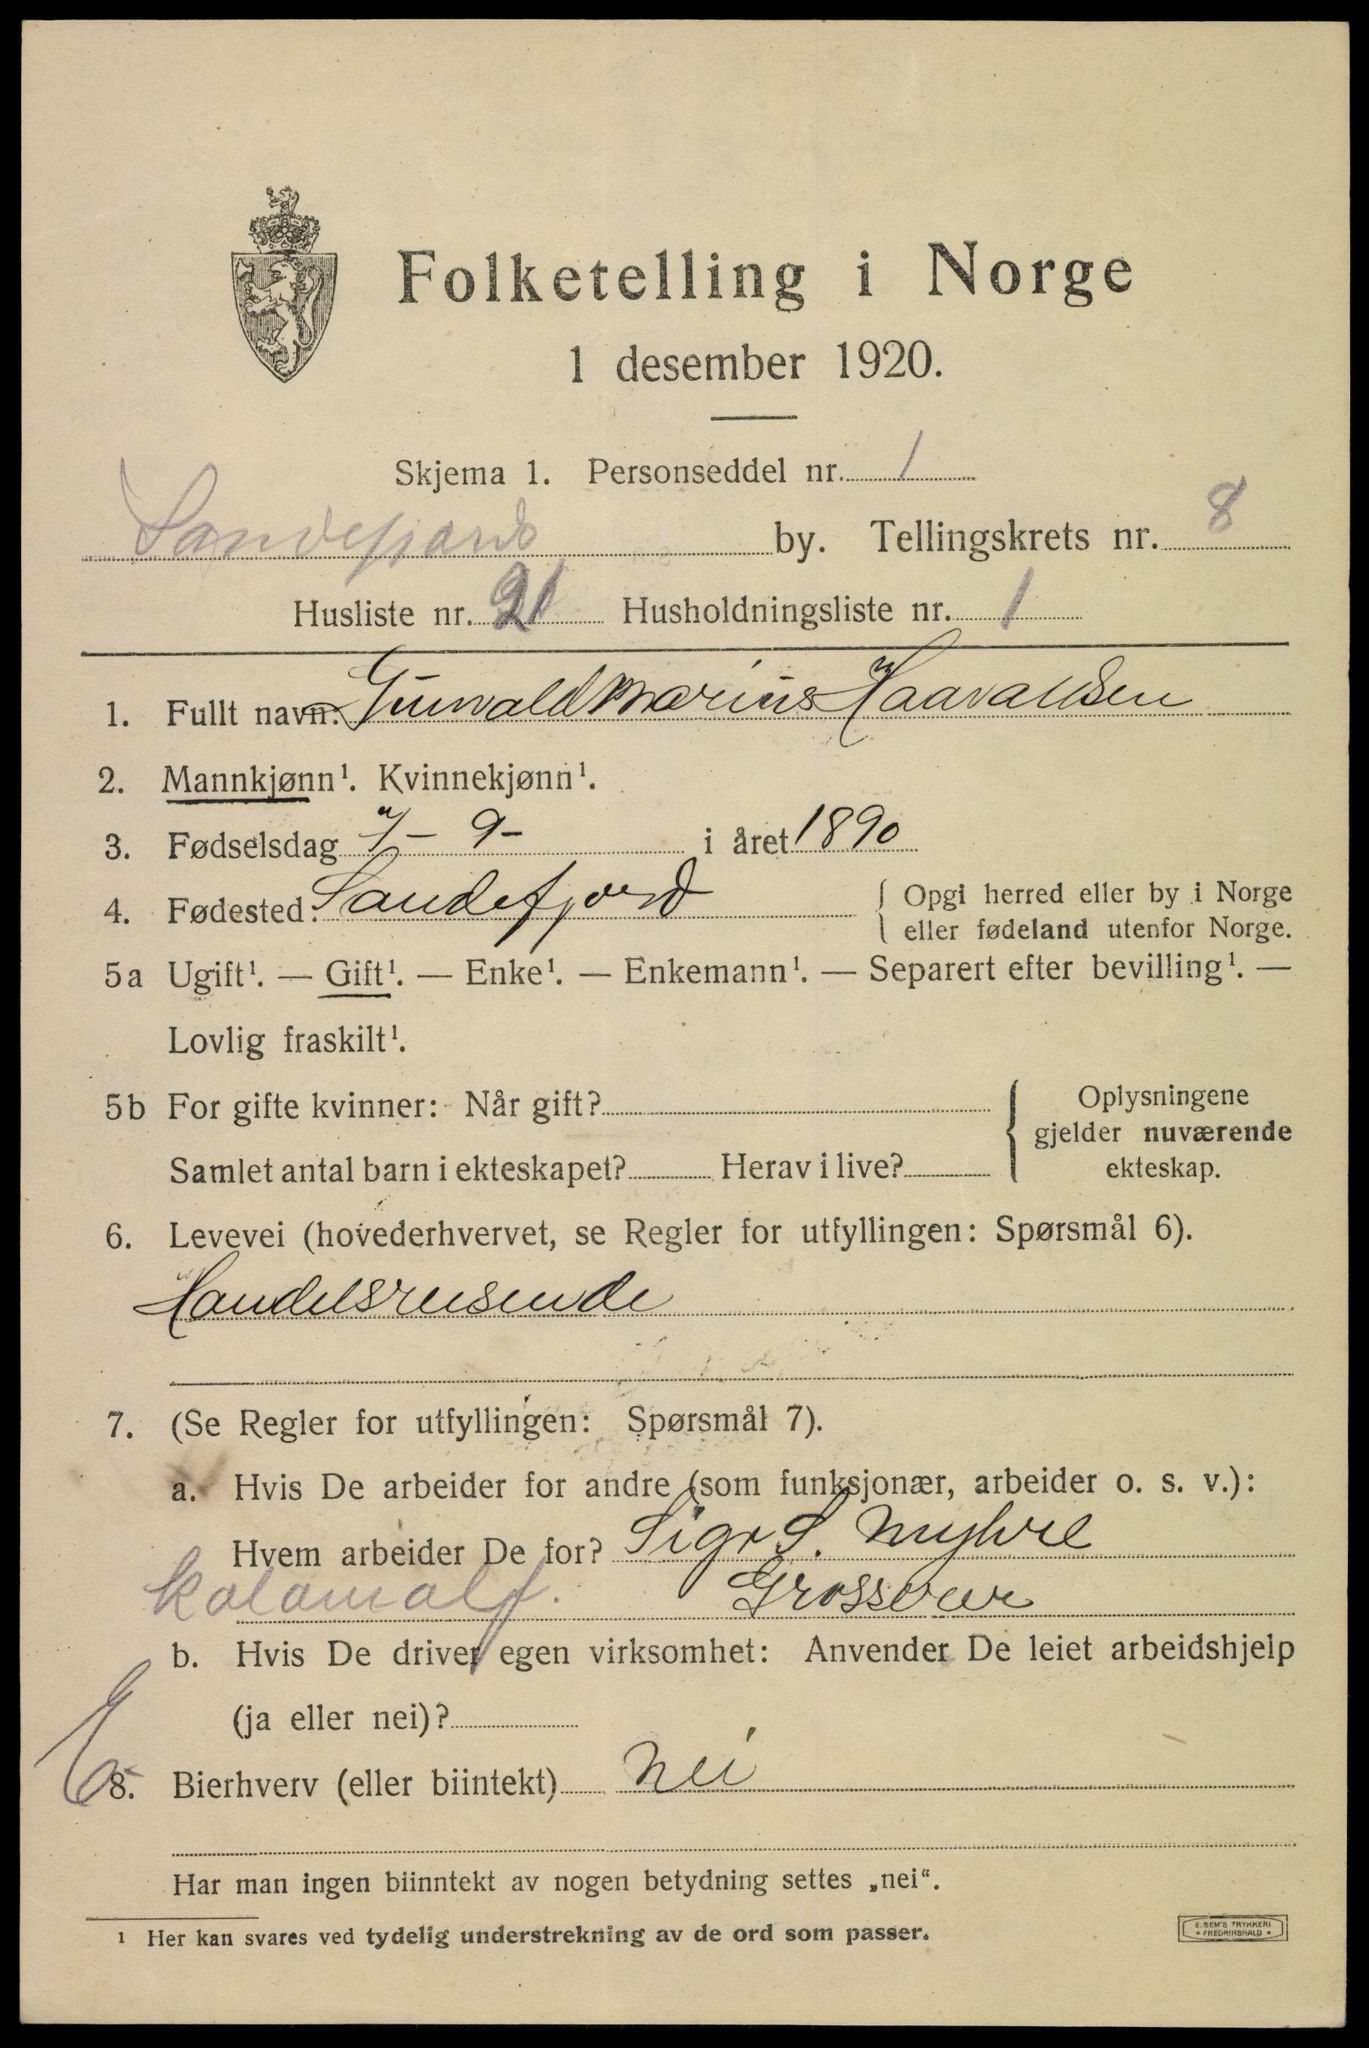 Folketelling i Norge
1 desember 1920.
Skjema 1. Personseddel nr. 1
Sandefjord by. Tellingskrets nr. 8
Husliste nr. 21 Husholdningsliste nr. 1
1. Fullt navn: Gunvald Marius Haavaldsen
2. Mannkjønn¹. Kvinnekjønn¹.
3. Fødselsdag 7 - 9 - i året 1890
4. Fødested: Sandefjord { Opgi herred eller by i Norge
eller fødeland utenfor Norge.
5a Ugift¹. — Gift¹. — Enke¹. — Enkemann¹. — Separert efter bevilling¹. —
Lovlig fraskilt¹.
5b For gifte kvinner: Når gift? { Oplysningene
gjelder nuværende
Samlet antal barn i ekteskapet? Herav i live? ekteskap.
6. Levevei (hovederhvervet, se Regler for utfyllingen: Spørsmål 6).
Handelsreisende
7. (Se Regler for utfyllingen: Spørsmål 7).
a. Hvis De arbeider for andre (som funksjonær, arbeider o. s. v.):
Hvem arbeider De for? Sigr S. Myhre
Grosserer
b. Hvis De driver egen virksomhet: Anvender De leiet arbeidshjelp
(ja eller nei)?
8. Bierhverv (eller biintekt) Nei
Har man ingen biinntekt av nogen betydning settes „nei“.
¹ Her kan svares ved tydelig understrekning av de ord som passer.
E. SEM'S TRYKKERI
* FREDRIKSHALD *